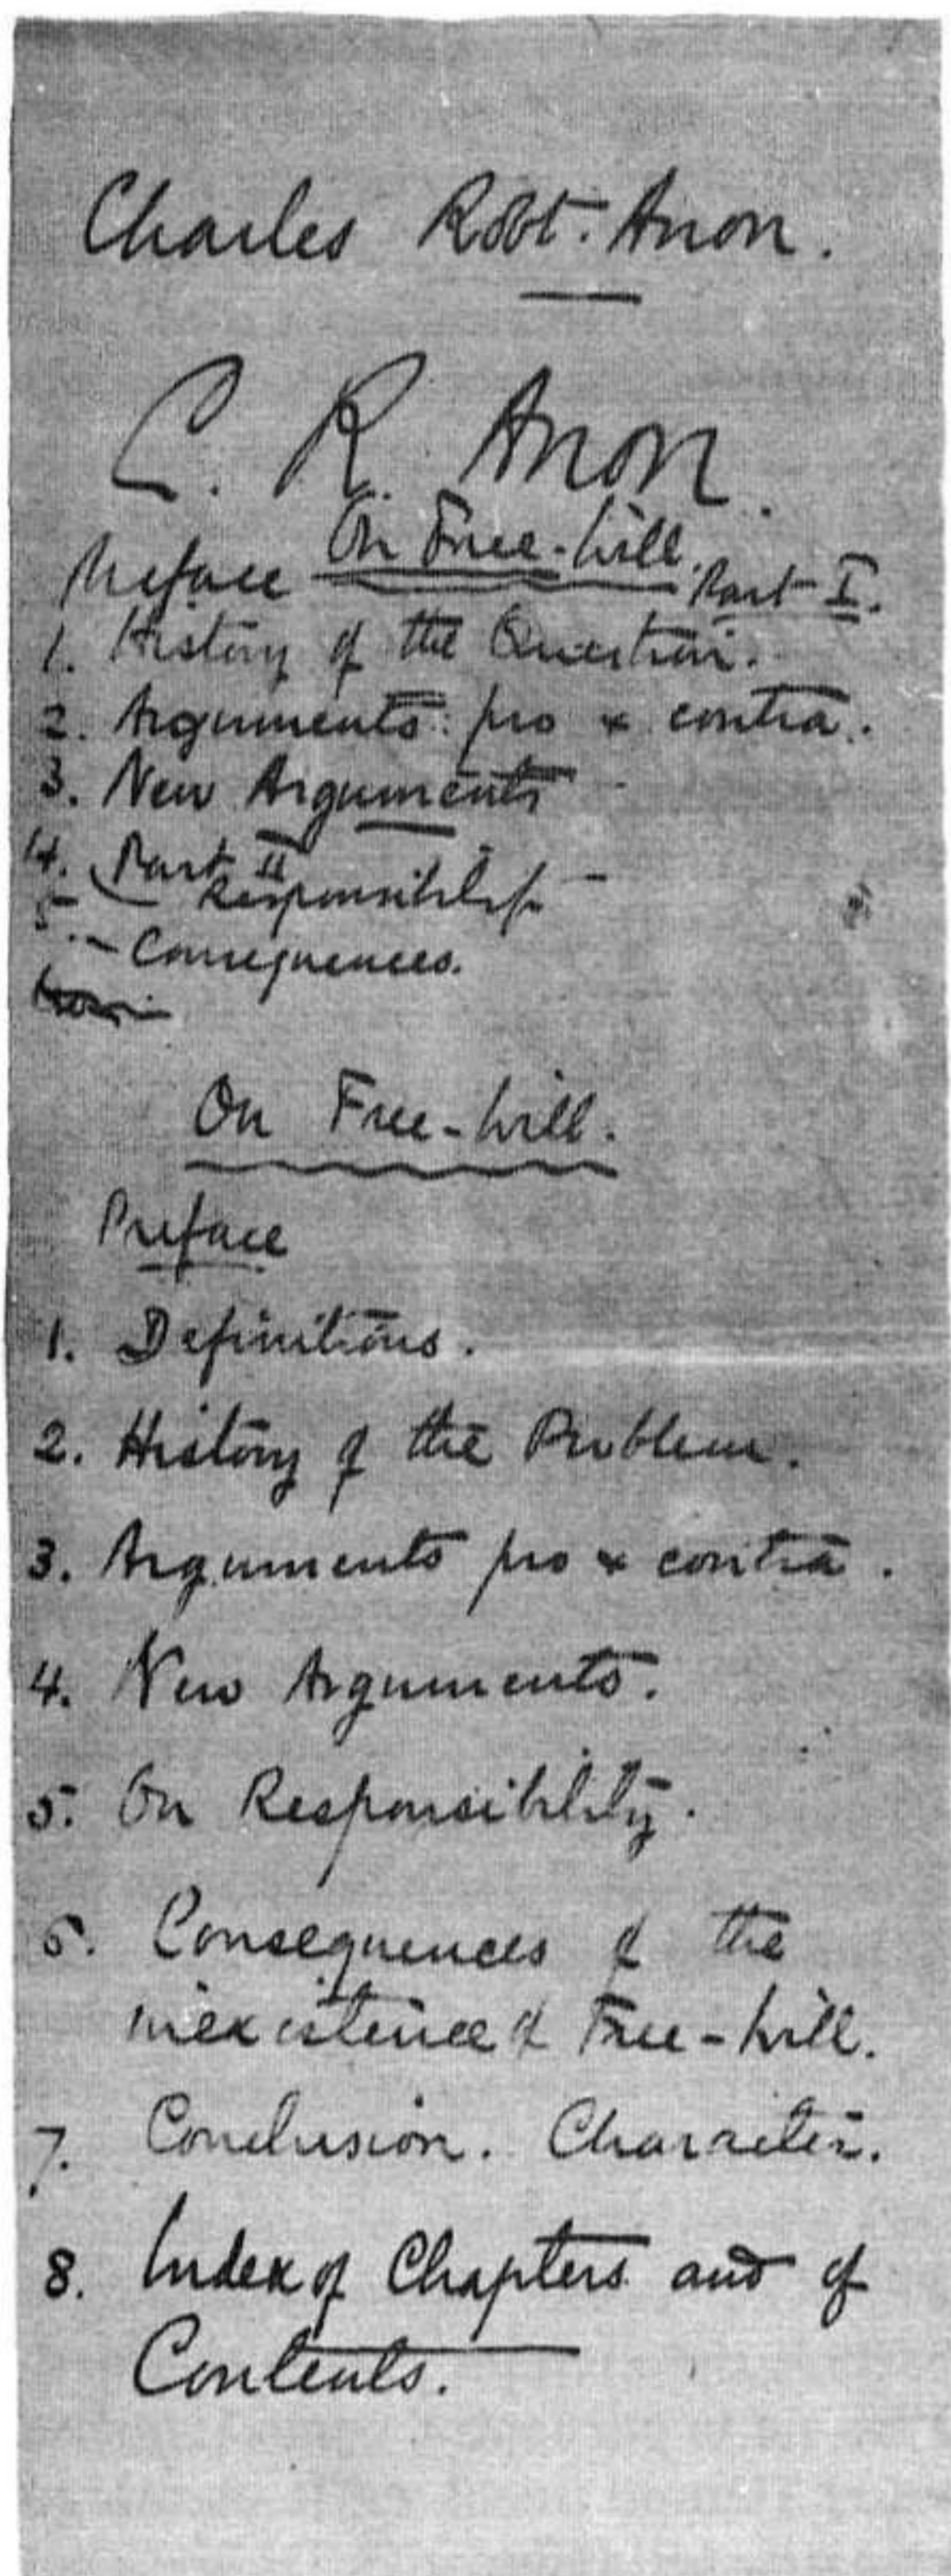 Charles Robt. Anon.
C. R. Anon.
On Free-will.
Preface Part I.
1. History of the Question.
2. Arguments: pro & contra.
3. New Arguments
4. Part II
Responsibility -
5. - Consequences.
On Free-will.
Preface
1. Definitions.
2. History of the Problem.
3. Arguments pro & contra.
4. New Arguments.
5. On Responsibility.
6. Consequences of the
inexistence of Free-will.
7. Conclusion. Character.
8. Index of Chapters and of
Contents.